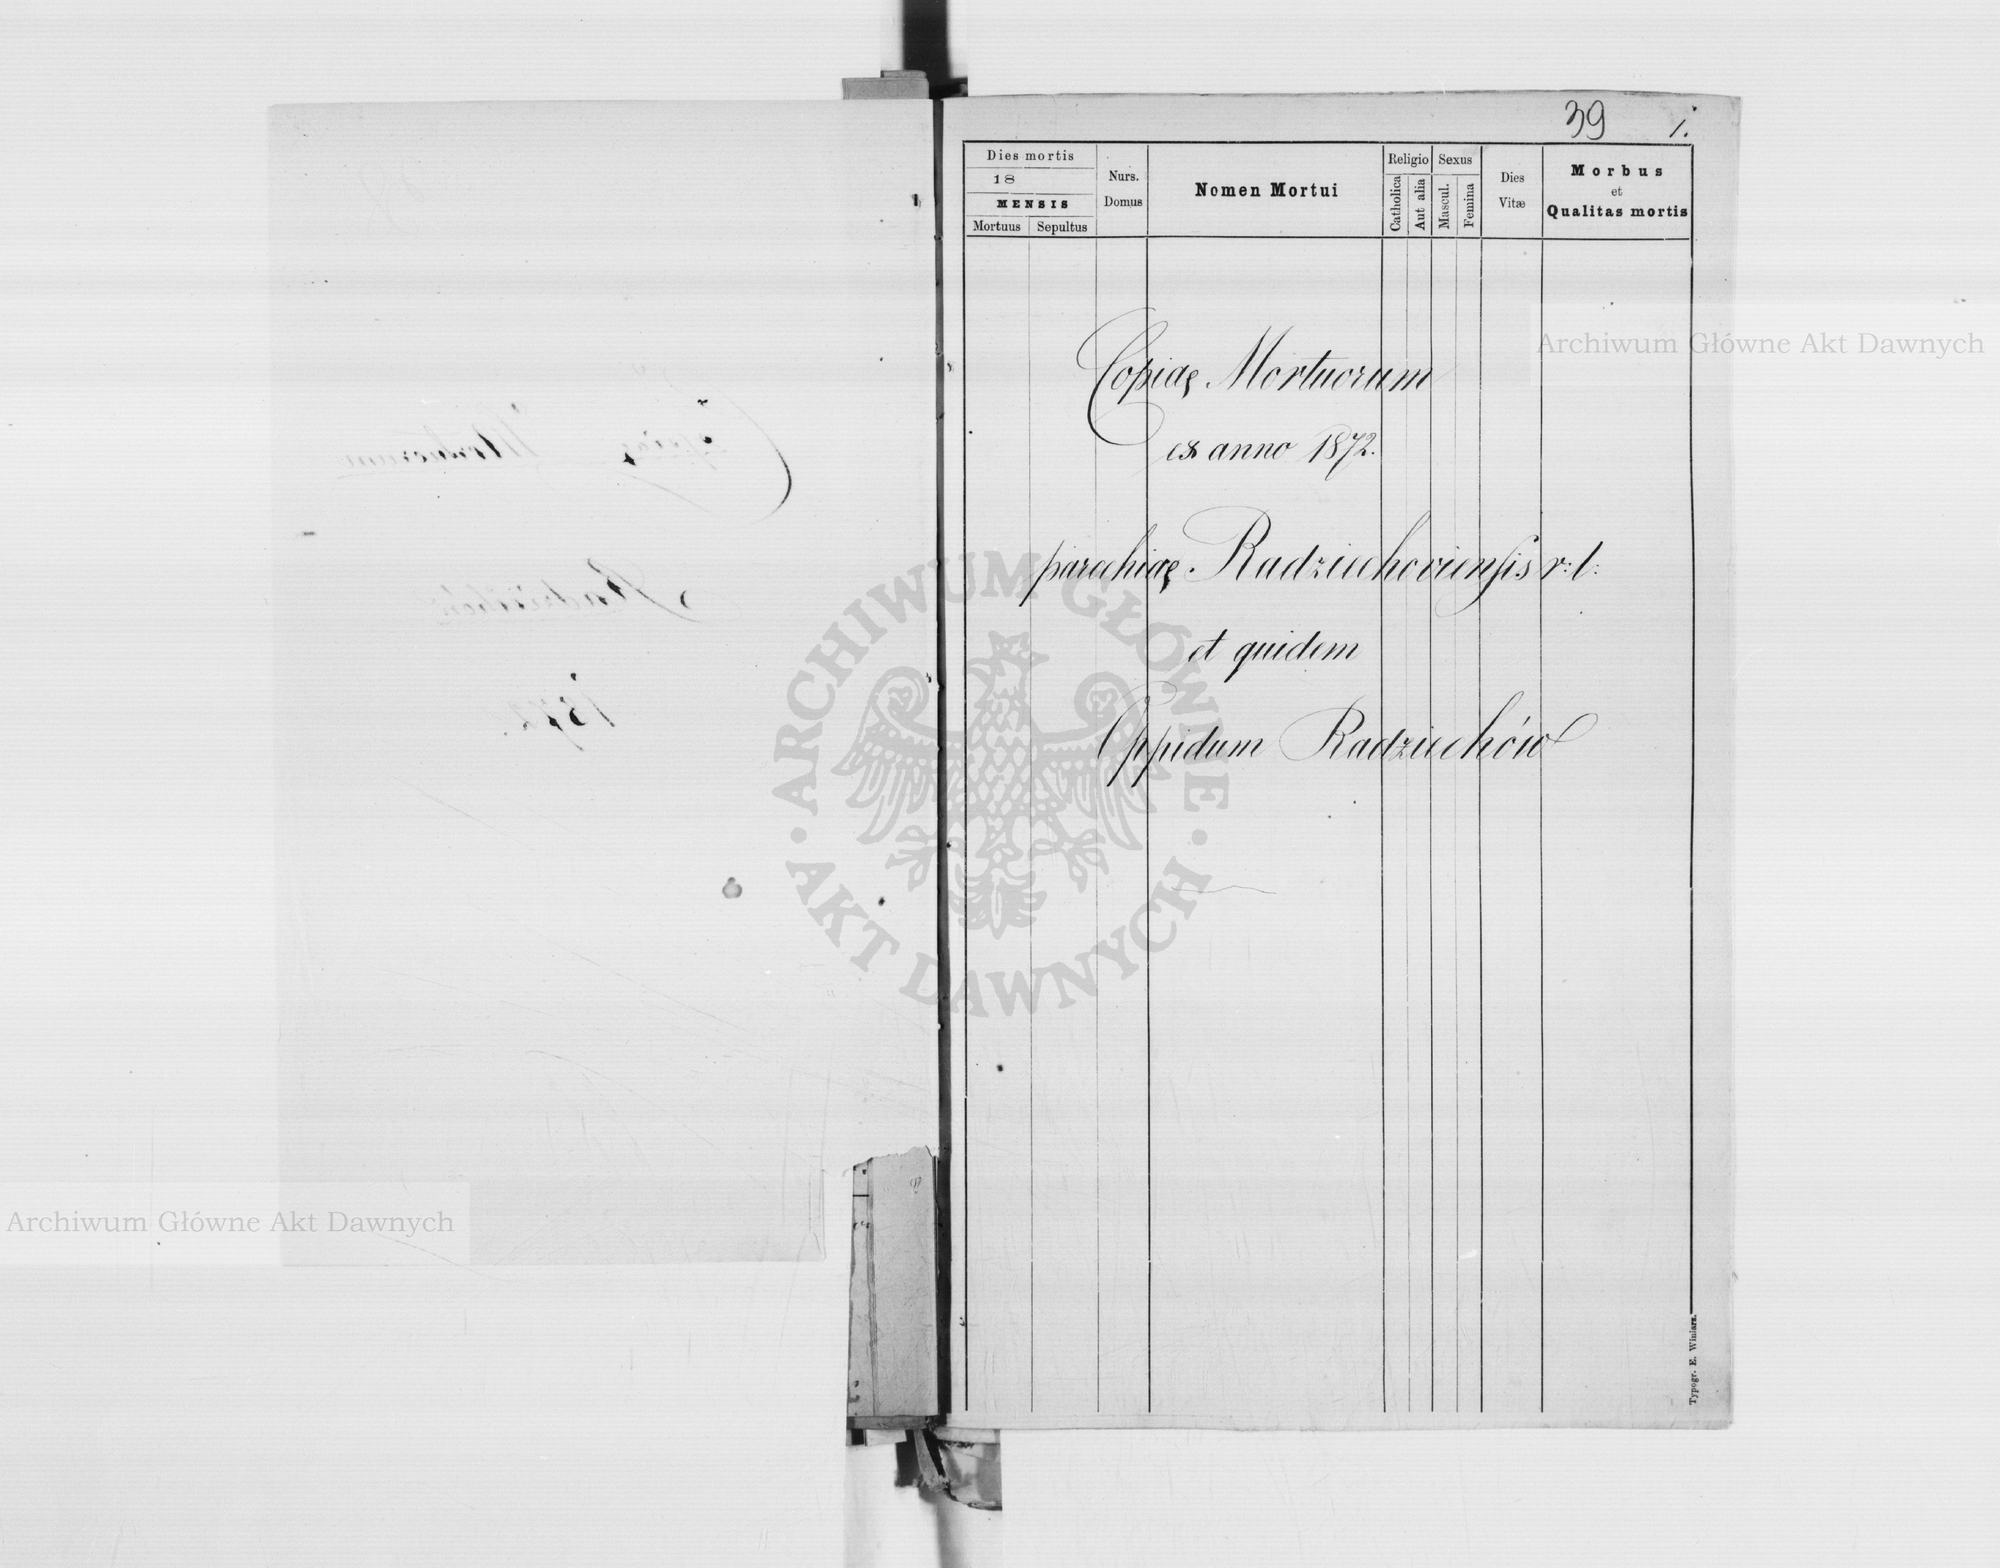 39 1.
Dies mortis
18
MENSIS
Mortuus Sepultus
Nurs.
Domus
Nomen Mortui
Religio
Catholica
Aut alia
Sexus
Mascul.
Femina
Dies
Vitæ
Morbus
et
Qualitas mortis
Copiaę Mortuorum
ex anno 1872.
parochiaę Radziechoviensis r: l:
et quidem
Oppidum Radziechów
Typogr. E. Winiarz.
Archiwum Główne Akt Dawnych
Archiwum Główne Akt Dawnych
ARCHIWUM GŁÓWNE · AKT DAWNYCH ·